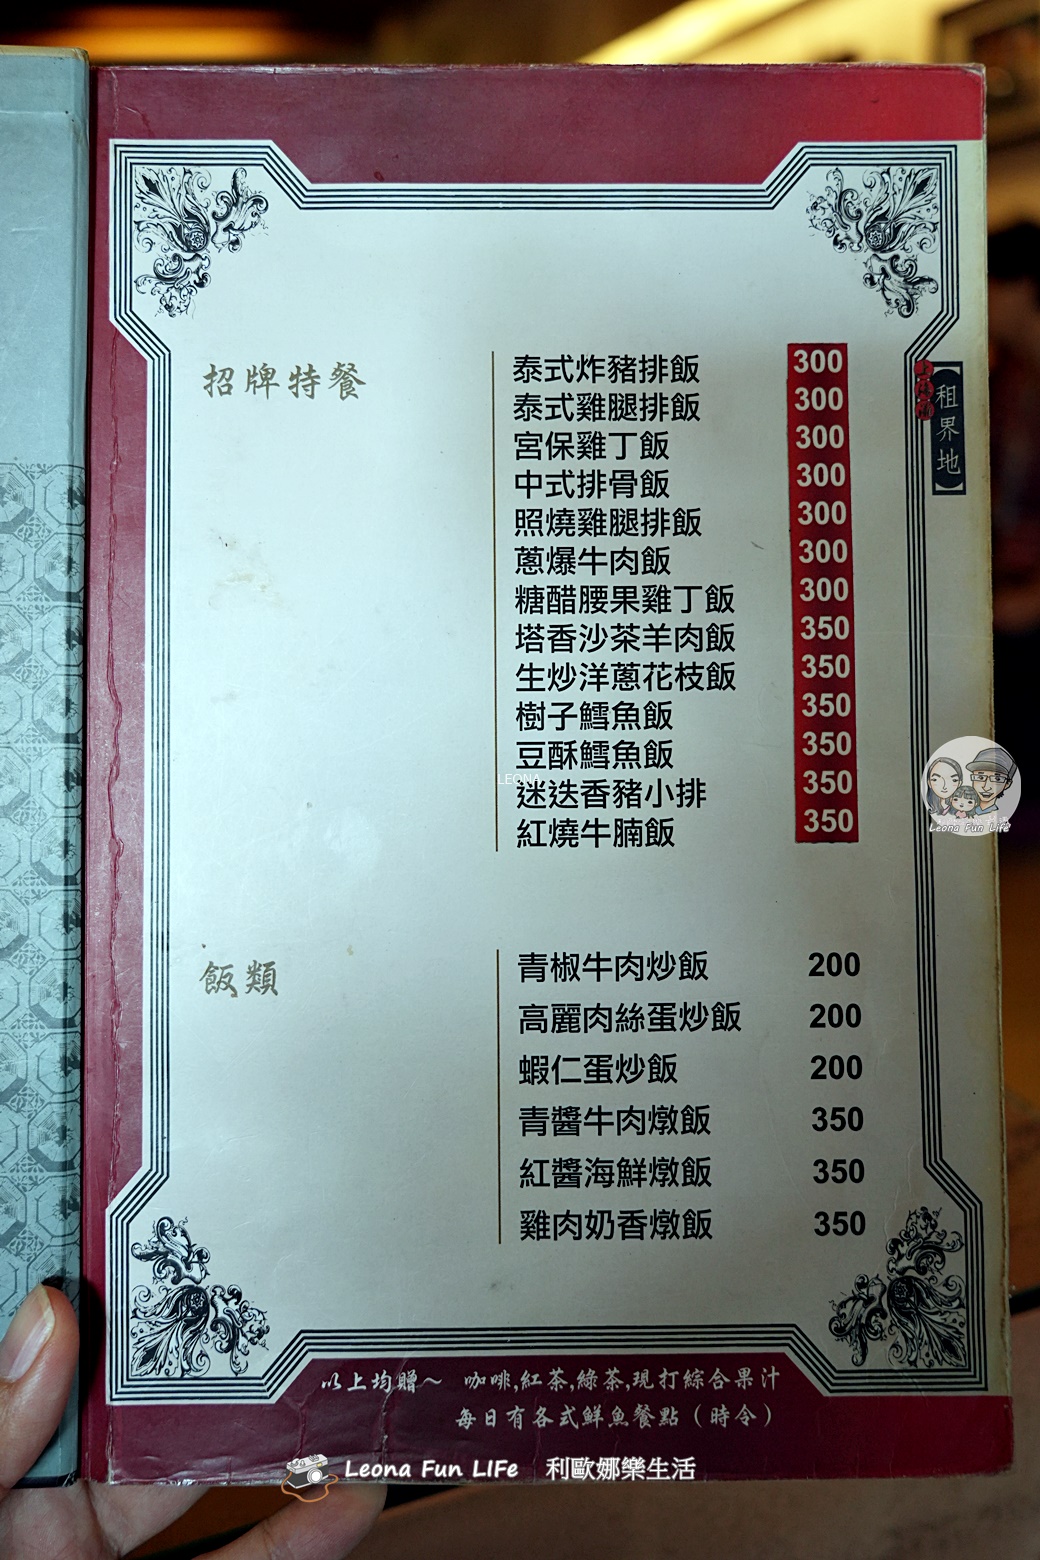 招牌特餐
泰式炸豬排飯 300
泰式雞腿排飯 300
宮保雞丁飯 300
中式排骨飯 300
照燒雞腿排飯 300
蔥爆牛肉飯 300
糖醋腰果雞丁飯 300
塔香沙茶羊肉飯 350
生炒洋蔥花枝飯 350
樹子鱈魚飯 350
豆酥鱈魚飯 350
迷迭香豬小排 350
紅燒牛腩飯 350
【租界地】
LEONA
Leona Fun Life
飯類
青椒牛肉炒飯 200
高麗肉絲蛋炒飯 200
蝦仁蛋炒飯 200
青醬牛肉燉飯 350
紅醬海鮮燉飯 350
雞肉奶香燉飯 350
以上均贈～ 咖啡,紅茶,綠茶,現打綜合果汁
每日有各式鮮魚餐點（時令）
Leona Fun Life 利歐娜樂生活